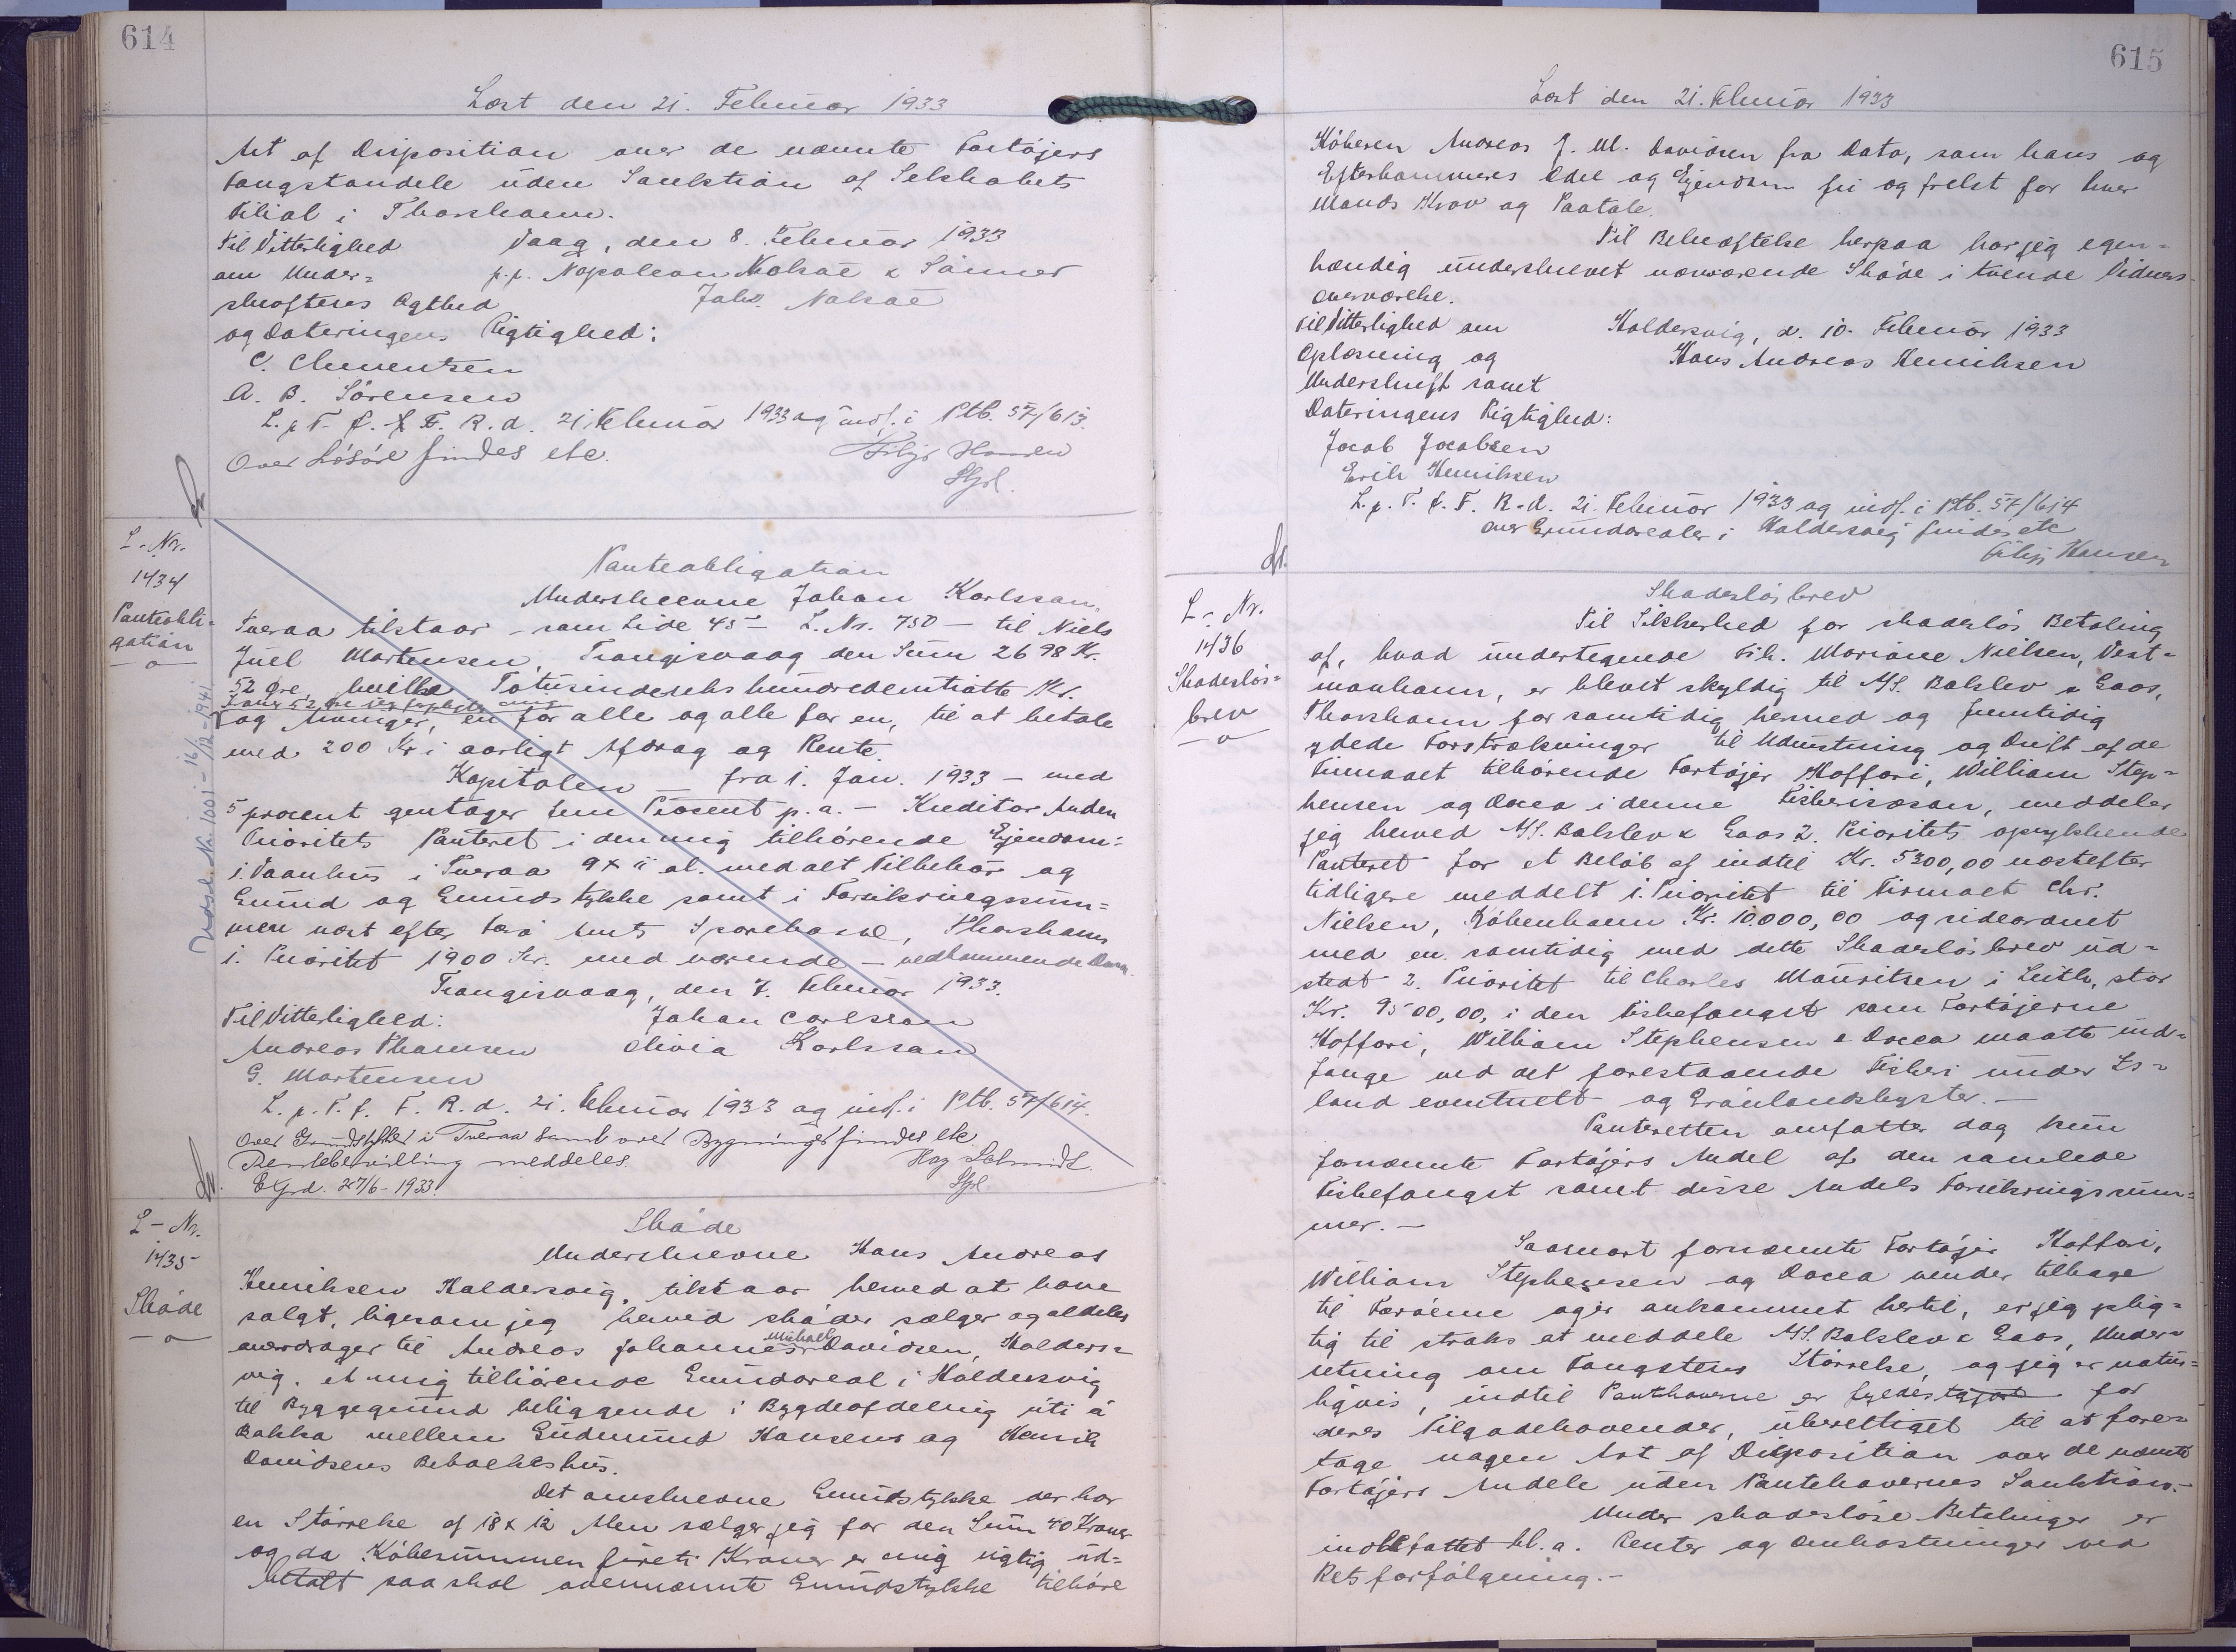 614
Læst den 21. Februar 1933
Art af Disposition over de nævnte Fartøjers
Fangstandele uden Sanktion af Selskabets
Filial i Thorshavn.
Til Vitterlighed Vaag, den 8. Februar 1933
om Under= p.p. Napoleon Nolsøe & Sønner
skrifternes Ægthed Johs. Nolsøe
og Dateringens Rigtighed:
C. Clementsen
A. B. Sørensen
L. p. T. f. F. R. d. 21. Februar 1933 og indf. i Ptb. 57/613.
Over Løsøre findes etc. Filip Hansen
Stfl.
L. Nr.
1434
Panteobli=
gation
Udsl. Nr. 1001 - 16/12 - 1941
Panteobligation
Underskrevne Johan Karlsson,
Tveraa tilstaar - som Side 45 - L. Nr. 750 - til Niels
Juel Mortensen, Trangisvaag den Sum 2698 Kr.
52 Øre, hvilke Totusindeseks hundredeniotiotte Kr.
og Avinger, en for alle og alle for en, til at betale
med 200 Kr i aarligt Afdrag og Rente.
Kapitalen - fra 1. Jan. 1933 - med
5 procent gentager fem Procent p. a. - Kreditor Anden
Prioritets Panteret i den mig tilhørende Ejendom:
1. Vaanhus i Tveraa 9 x 11 al. med alt Tilbehør og
Grund og Grundstykke samt i Forsikringssum=
men næst efter Færø Amts Sparekasse, Thorshavn
1. Prioritet 1900 Kr. med værende - vedkommende
Trangisvaag, den 7. Februar 1933.
Til Vitterlighed: Johan Carlsson
Andreas Thomsen Olivia Karlsson
G. Mortensen
L. p. T. f. F. R. d. 21. Februar 1933 og indf. i Ptb. 57/614.
Over Grundstykket i Tveraa samt over Bygninger findes etc.
Rentebevilling meddeles. Hag Schmidt.
Exprd. 27/6 - 1933. Stfl.
L - Nr.
1435
Skøde
Skøde
Underskrevne Hans Andreas
Henriksen Haldersvig, tilstaar herved at have
solgt, ligesom jeg herved skøder sælger og aldeles
overdrager til Andreas Johannes Michael Davidsen, Halders=
vig, et mig tilhørende Grundareal i Haldersvig
til Byggegrund beliggende i Bygdeafdeling úti á
Bakka mellem Gudmund Hansens og Henrik
Davidsens Beboelseshus.
Det omskrevne Grundstykke der har
en Størrelse af 18 x 12 Alen sælger jeg for den Sum 40 Kroner
og da Købesummen fireti Kroner er mig rigtig ud=
betalt saa skal ovennævnte Grundstykke tilhøre
615
Læst den 21. Februar 1933
Køberen Andreas J. M. Davidsen fra Dato, som hans og
Efterkommeres Odel og Ejendom fri og frelst for hver
Mands Krav og Paatale.
Til Bekræftelse herpaa har jeg egen=
hændig underskrevet nærværende Skøde i tvende Vidners
Overværelse.
Til Vitterlighed om Haldersvig, d. 10. Februar 1933
Oplæsning og Hans Andreas Henriksen
Underskrift samt
Dateringens Rigtighed:
Jacob Jacobsen
Erik Henriksen
L. p. T. f. F. R. d. 21. Februar 1933 og indf. i Ptb. 57/614
over Grundarealer i Haldersvig findes etc
Filip Hansen
L. Nr.
1436
Skadesløs=
brev
Skadesløsbrev
Til Sikkerhed for skadesløs Betaling
af, hvad undertegnede Frk. Mariane Nielsen, Vest=
manhavn, er blevet skyldig til M/S. Balslev & Gaos,
Thorshavn for samtidig hermed og fremtidig
ydede Forstrækninger til Udrustning og Drift af de
Firmaet tilhørende Fartøjer Hoffari, William Step=
hensen og Docea i denne Fiskerisæson, meddeler
jeg herved M/S. Balslev & Gaos 2. Prioritets oprykkende
Panteret for et Beløb af indtil Kr. 5300,00 næstefter
tidligere meddelt 1. Prioritet til Firmaet Chr.
Nielsen, København Kr. 10.000,00 og sideordnet
med en samtidig med dette Skadesløsbrev ud=
stedt 2. Prioritet til Charles Mauritsen i Leith, stor
Kr. 9500,00, i den Fiskefangst som Fartøjerne
Hoffari, William Stephensen & Docea maatte ind=
fange ved det forestaaende Fiskeri under Is=
land eventuelt og Grønlandskyster. -
Panteretten omfatter dog kun
fornævnte Fartøjers Andel af den samlede
Fiskefangst samt disse Andels Forsikringssum=
mer. -
Saasnart fornævnte Fartøjer Hoffari,
William Stephensen og Docea vender tilbage
til Færøerne og er ankommet hertil, er jeg plig=
tig til straks at meddele M/S. Balslev & Gaos, Under=
retning om Fangstens Størrelse, og jeg er natur=
ligvis, indtil Panthaverne er fyldestgjort for
deres Tilgodehavender, uberettiget til at fore=
tage nogen Art af Disposition over de nævnte
Fartøjers Andele uden Pantehavernes Sanktion. -
Under skadesløse Betalinger er
indbefattet bl. a. Renter og Omkostninger ved
Retsforfølgning. -